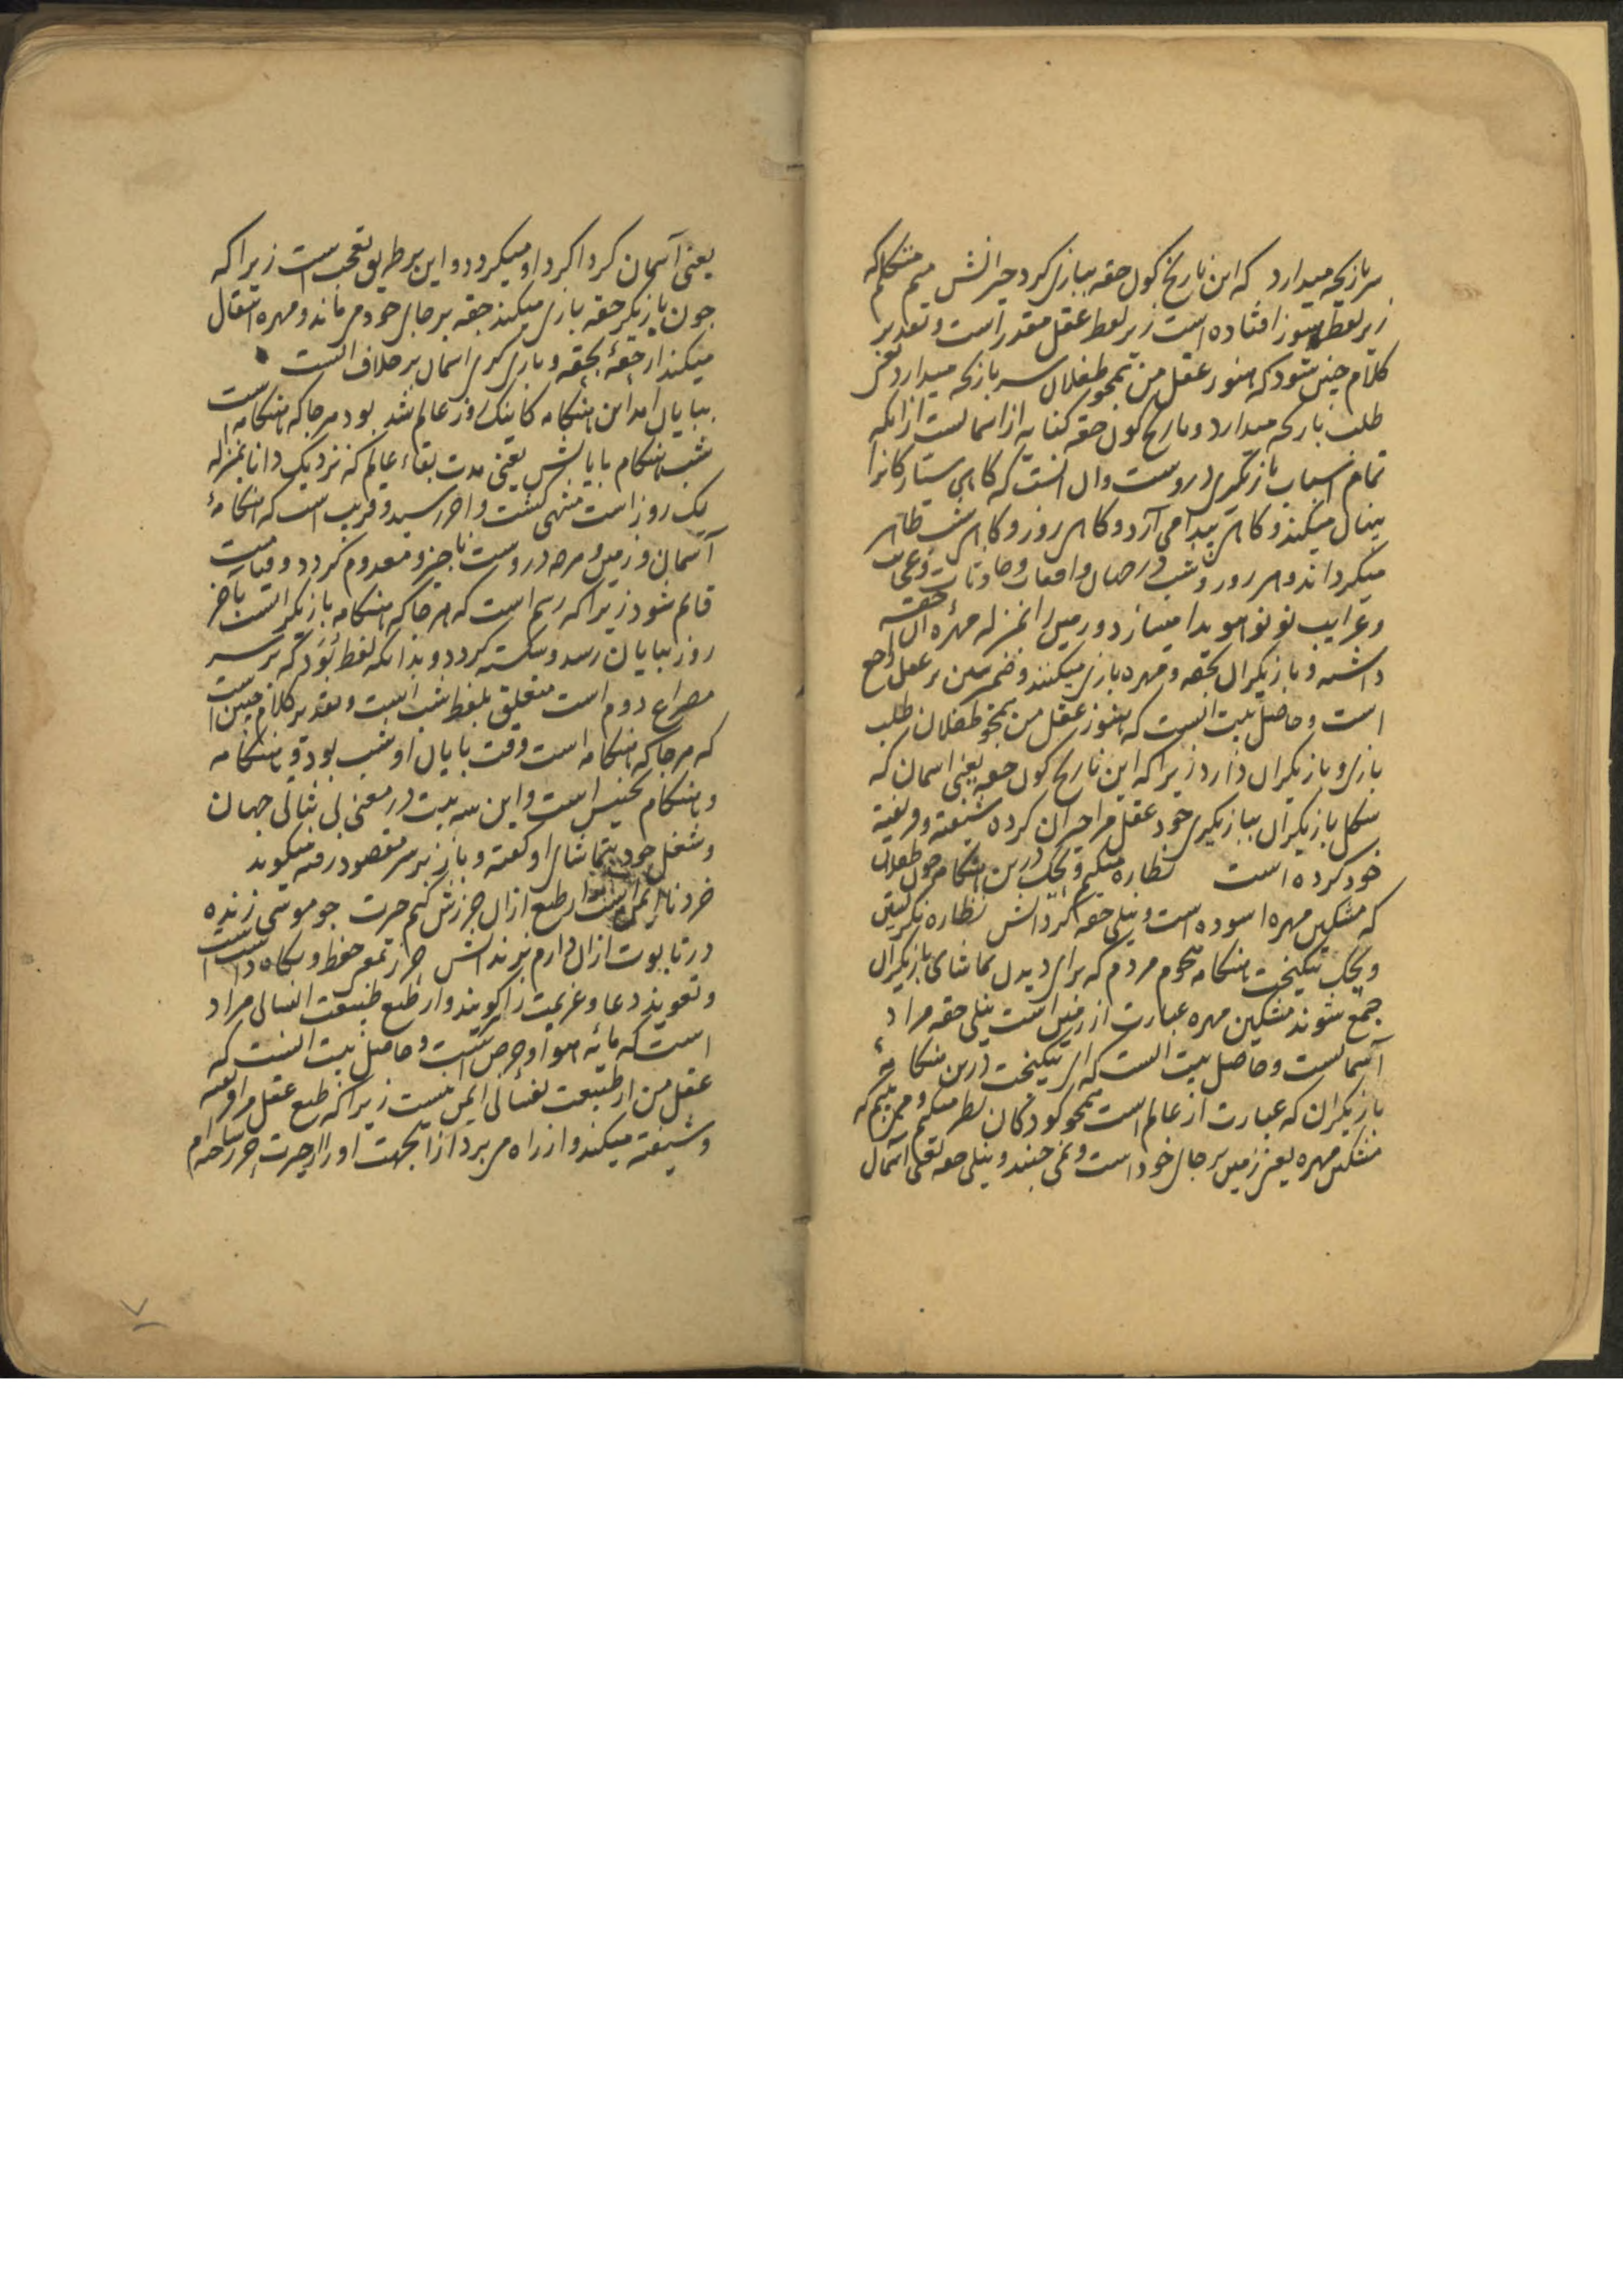 سر بازیچه میدارد که این نارنج کون حقه ببازی کرد حیرانش میم متکلم که
زیر لفظ هنوز افتاده است زیر لفظ عقل مقدر است و تقدیر
کلام چنین شود که هنوز عقل من همچو طفلان سر بازیچه میدارد یعنی
طلب بازیچه میدارد و نارنج کون حقه کنایه از اسمانست از انکه
تمام اسباب بازیگری دروست و آن انست که گاهی ستارگانرا
پنهان میکند و گاهی پیدا می آرد و گاهی روز و گاهی شب ظاهر
میگرداند و هر روز و شب در جهان واقعات و حادثات و عجایب
و غرایب نو نو هویدا میسازد و زمین را بمنزله مهره آن حقه
داشته و بازیگران بحقه و مهره بازی میکنند و ضمیر شین بر عقل راجع
است و حاصل بیت انست که هنوز عقل من همچو طفلان طلب
بازی و بازیگران دارد زیرا که این نارنج کون حقه یعنی اسمان که
بشکل بازیگران ببازیگری خود عقل مرا حیران کرده شیفته و فریفته
خود کرده است نظاره میکنم ویحک درین هنگامه چون طفلان
که مشکین مهره اسوده است و نیلی حقه گردانش نظاره نگریستن
ویحک نیکبخت هنگامه هجوم مردم که برای دیدن تماشای بازیگران
جمع شوند مشکین مهره عبارت از زمین است نیلی حقه مراد
آسمانست و حاصل بیت انست که ای نیکبخت درین هنگامهٔ
بازیگران که عبارت از عالم است همچو کودکان نظر میکنم و می بینم که
مشکین مهره یعنی زمین بر جای خود است و نمی جنبد و نیلی حقه یعنی آسمان
یعنی آسمان گرداگرد او میگردد و این بر طریق تعجب است زیرا که
چون بازیگر حقه بازی میکند حقه بر جای خود می ماند و مهره انتقال
میکند از حقهٔ بحقه و بازی گری اسمان بر خلاف انست
بپایان آمد این هنگامه کاینک روز عالم شد بود هر جا که هنگامه است
شب هنگام پایانش یعنی مدت بقاء عالم که نزدیک دانا بمنزله
یک روز است منتهی گشت و اخر رسید و قریب است که هنگامهٔ
آسمان و زمین و هرچه دروست ناچیز و معدوم گردد و قیامت
قائم شود زیرا که رسم است که هر جا که هنگامه بازیگرانست بآخر
روز بپایان رسد و شکسته گردد و بدانکه لفظ بود که بر سر
مصراع دوم است متعلق بلفظ شب است و تقدیر کلام چنین است
که هر جا که هنگامه است وقت پایان او شب بود و هنگامه
و هنگام تجنیس است و این سه بیت در معنی بی ثباتی جهان
و شغل خود بتماشای او گفته و باز بر سر مقصود رفته میگوید
خرد ناایمن است از طبع ازان حرزش کنم حیرت چو موسی زنده
در تابوت ازان دارم بزندانش حرز بمعنی حفظ و نگاه داشت است
و تعویذ و دعا و عزیمت را گویند و از طبع طبیعت انسانی مراد
است که مائه هوا و حرص است و حاصل بیت انست که
عقل من از طبیعت نفسانی ایمن نیست زیرا که طبع عقل مرا فریفته
و شیفته میکند و از راه می برد ازینجهت او را از حیرت حرز ساخته ام